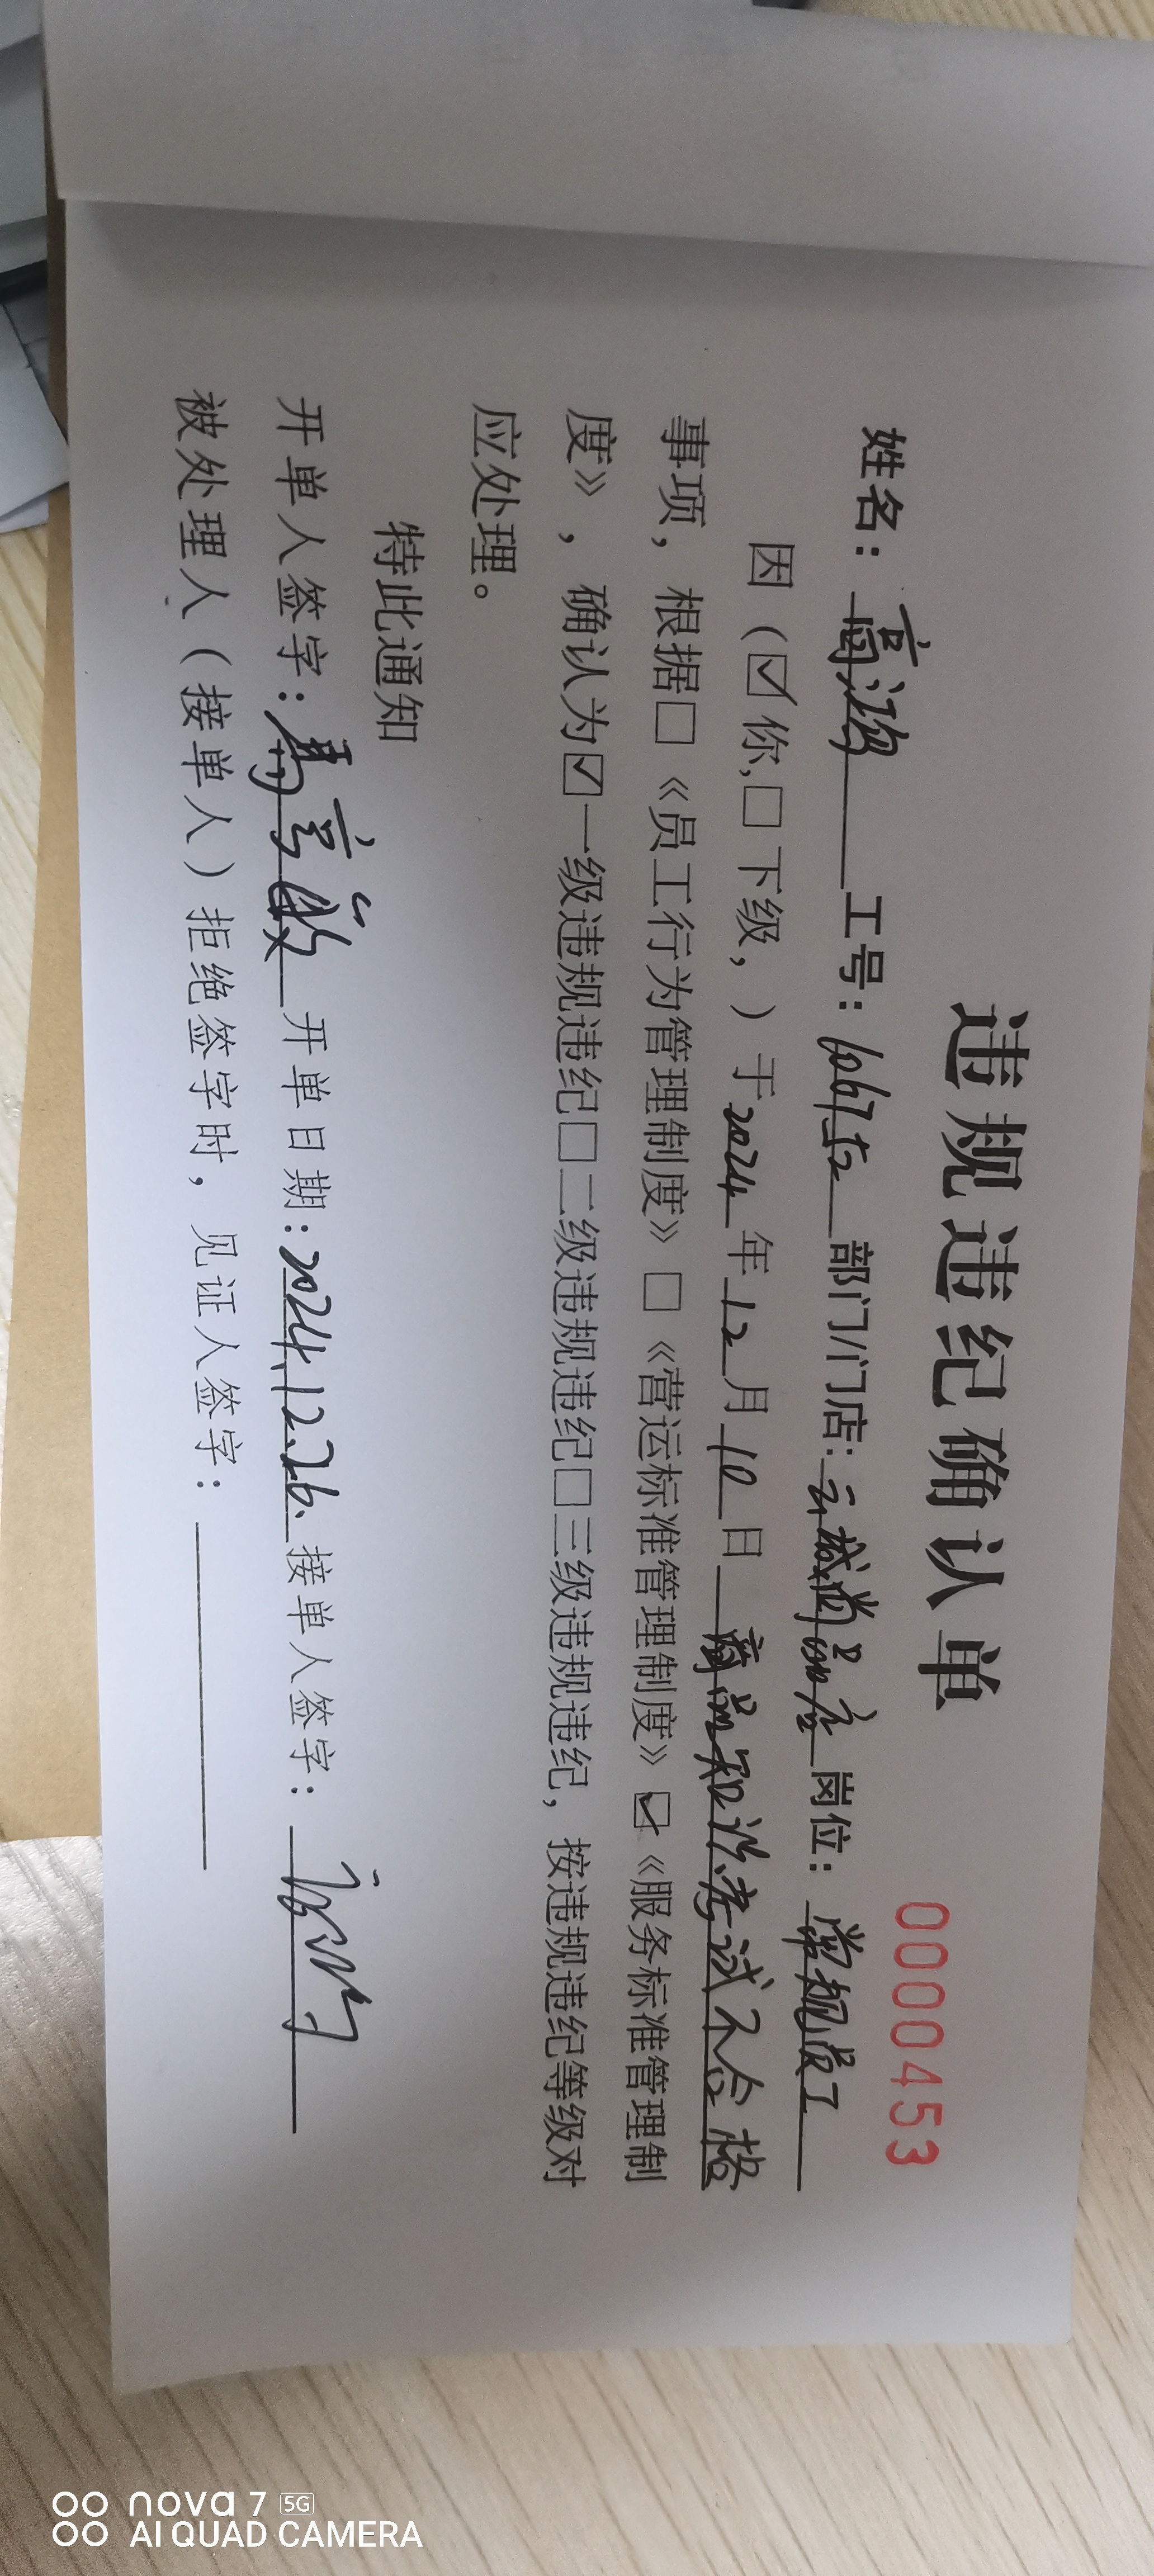 违规违纪确认单
0000453
姓名： 工号： 部门/门店：云城尚品店 岗位：常规员工
因（☑你,□下级，）于2024年12月10日 商品知识考试不合格
事项，根据□《员工行为管理制度》□《营运标准管理制度》☑《服务标准管理制
度》，确认为☑一级违规违纪□二级违规违纪□三级违规违纪，按违规违纪等级对
应处理。
特此通知
开单人签字： 开单日期:2024.12.26. 接单人签字：
被处理人（接单人）拒绝签字时，见证人签字：
nova 7 5G
AI QUAD CAMERA